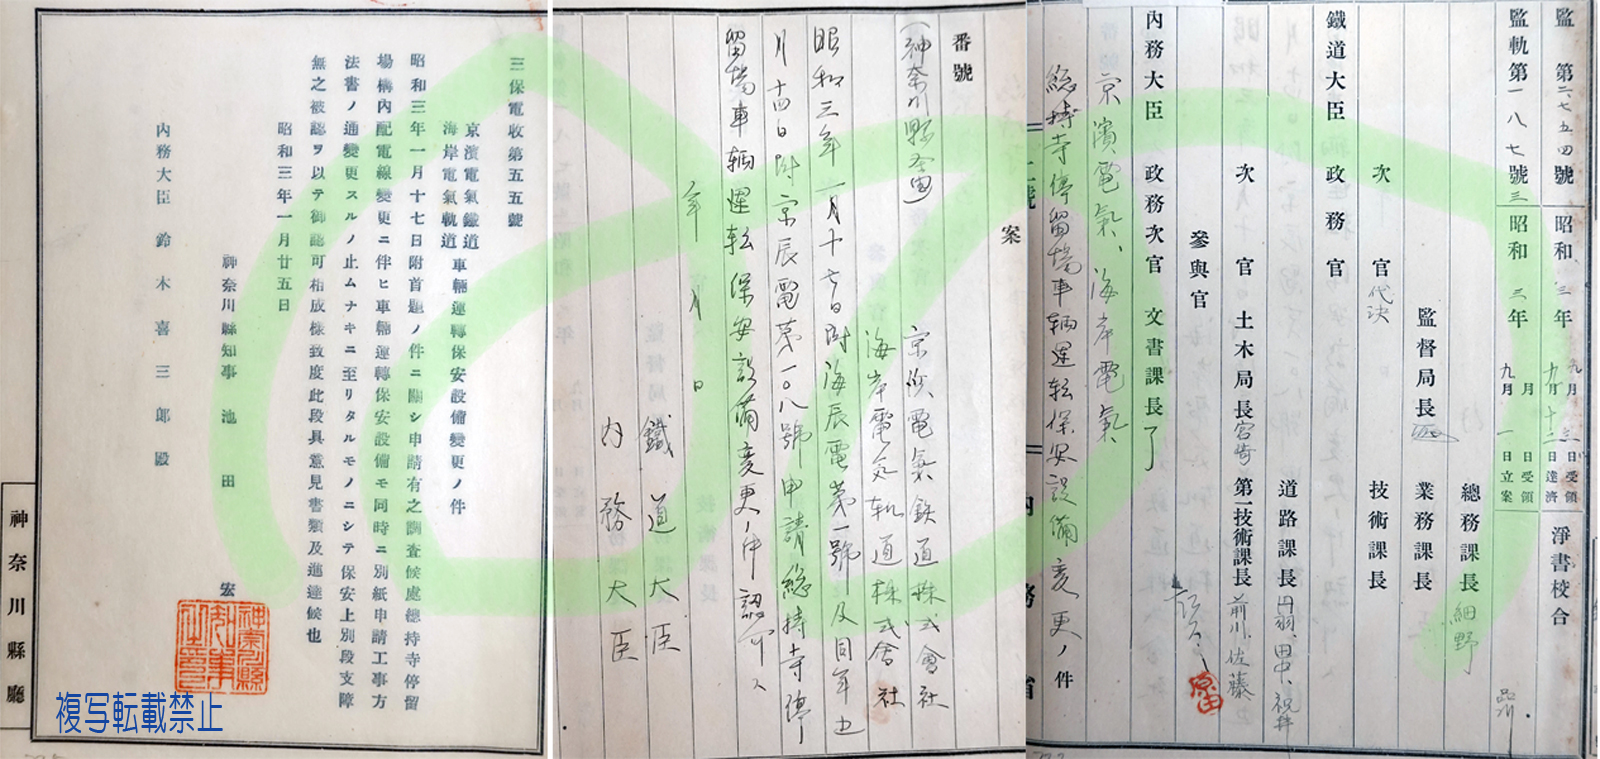 監　第二七五四號　昭和三年九月十三日受領
九月十二日達済　淨書校合
監軌第一八七號三　昭和三年　月　日受領
九月一日立案
總務課長　細野
監督局長　業務課長
次官代決　技術課長
鐵道大臣　政務官
道路課長　丹羽、田中、祝井
次官　土木局長　宮崎　第一技術課長　前川、佐藤
參與官
內務大臣　政務次官　文書課長
京濱電氣、海岸電氣
総持寺停留場車輌運転保安設備変更ノ件
內務省
案
番號
（神奈川縣経由）　京濱電氣鉄道株式會社
海岸電気軌道株式會社
昭和三年一月十七日附海辰電第一號及同年
月十四日附京辰電第一〇八號申請総持寺停
留場車輌運転保安設備変更ノ件認可ス
年　月　日
鐵道大臣
內務大臣
三保電收第五五號
京濱電氣鐵道
海岸電氣軌道　車輛運轉保安設備變更ノ件
昭和三年一月十七日附首題ノ件ニ關シ申請有之調査候處總持寺停留
場構內配電線變更ニ伴ヒ車輛運轉保安設備モ同時ニ別紙申請工事方
法書ノ通變更スルノ止ムナキニ至リタルモノニシテ保安上別段支障
無之被認ヲ以テ御認可相成樣致度此段具意見書類及進達候也
昭和三年一月廿五日
神奈川縣知事　池田　宏
內務大臣　鈴木喜三郎殿
神奈川縣廳
複写転載禁止